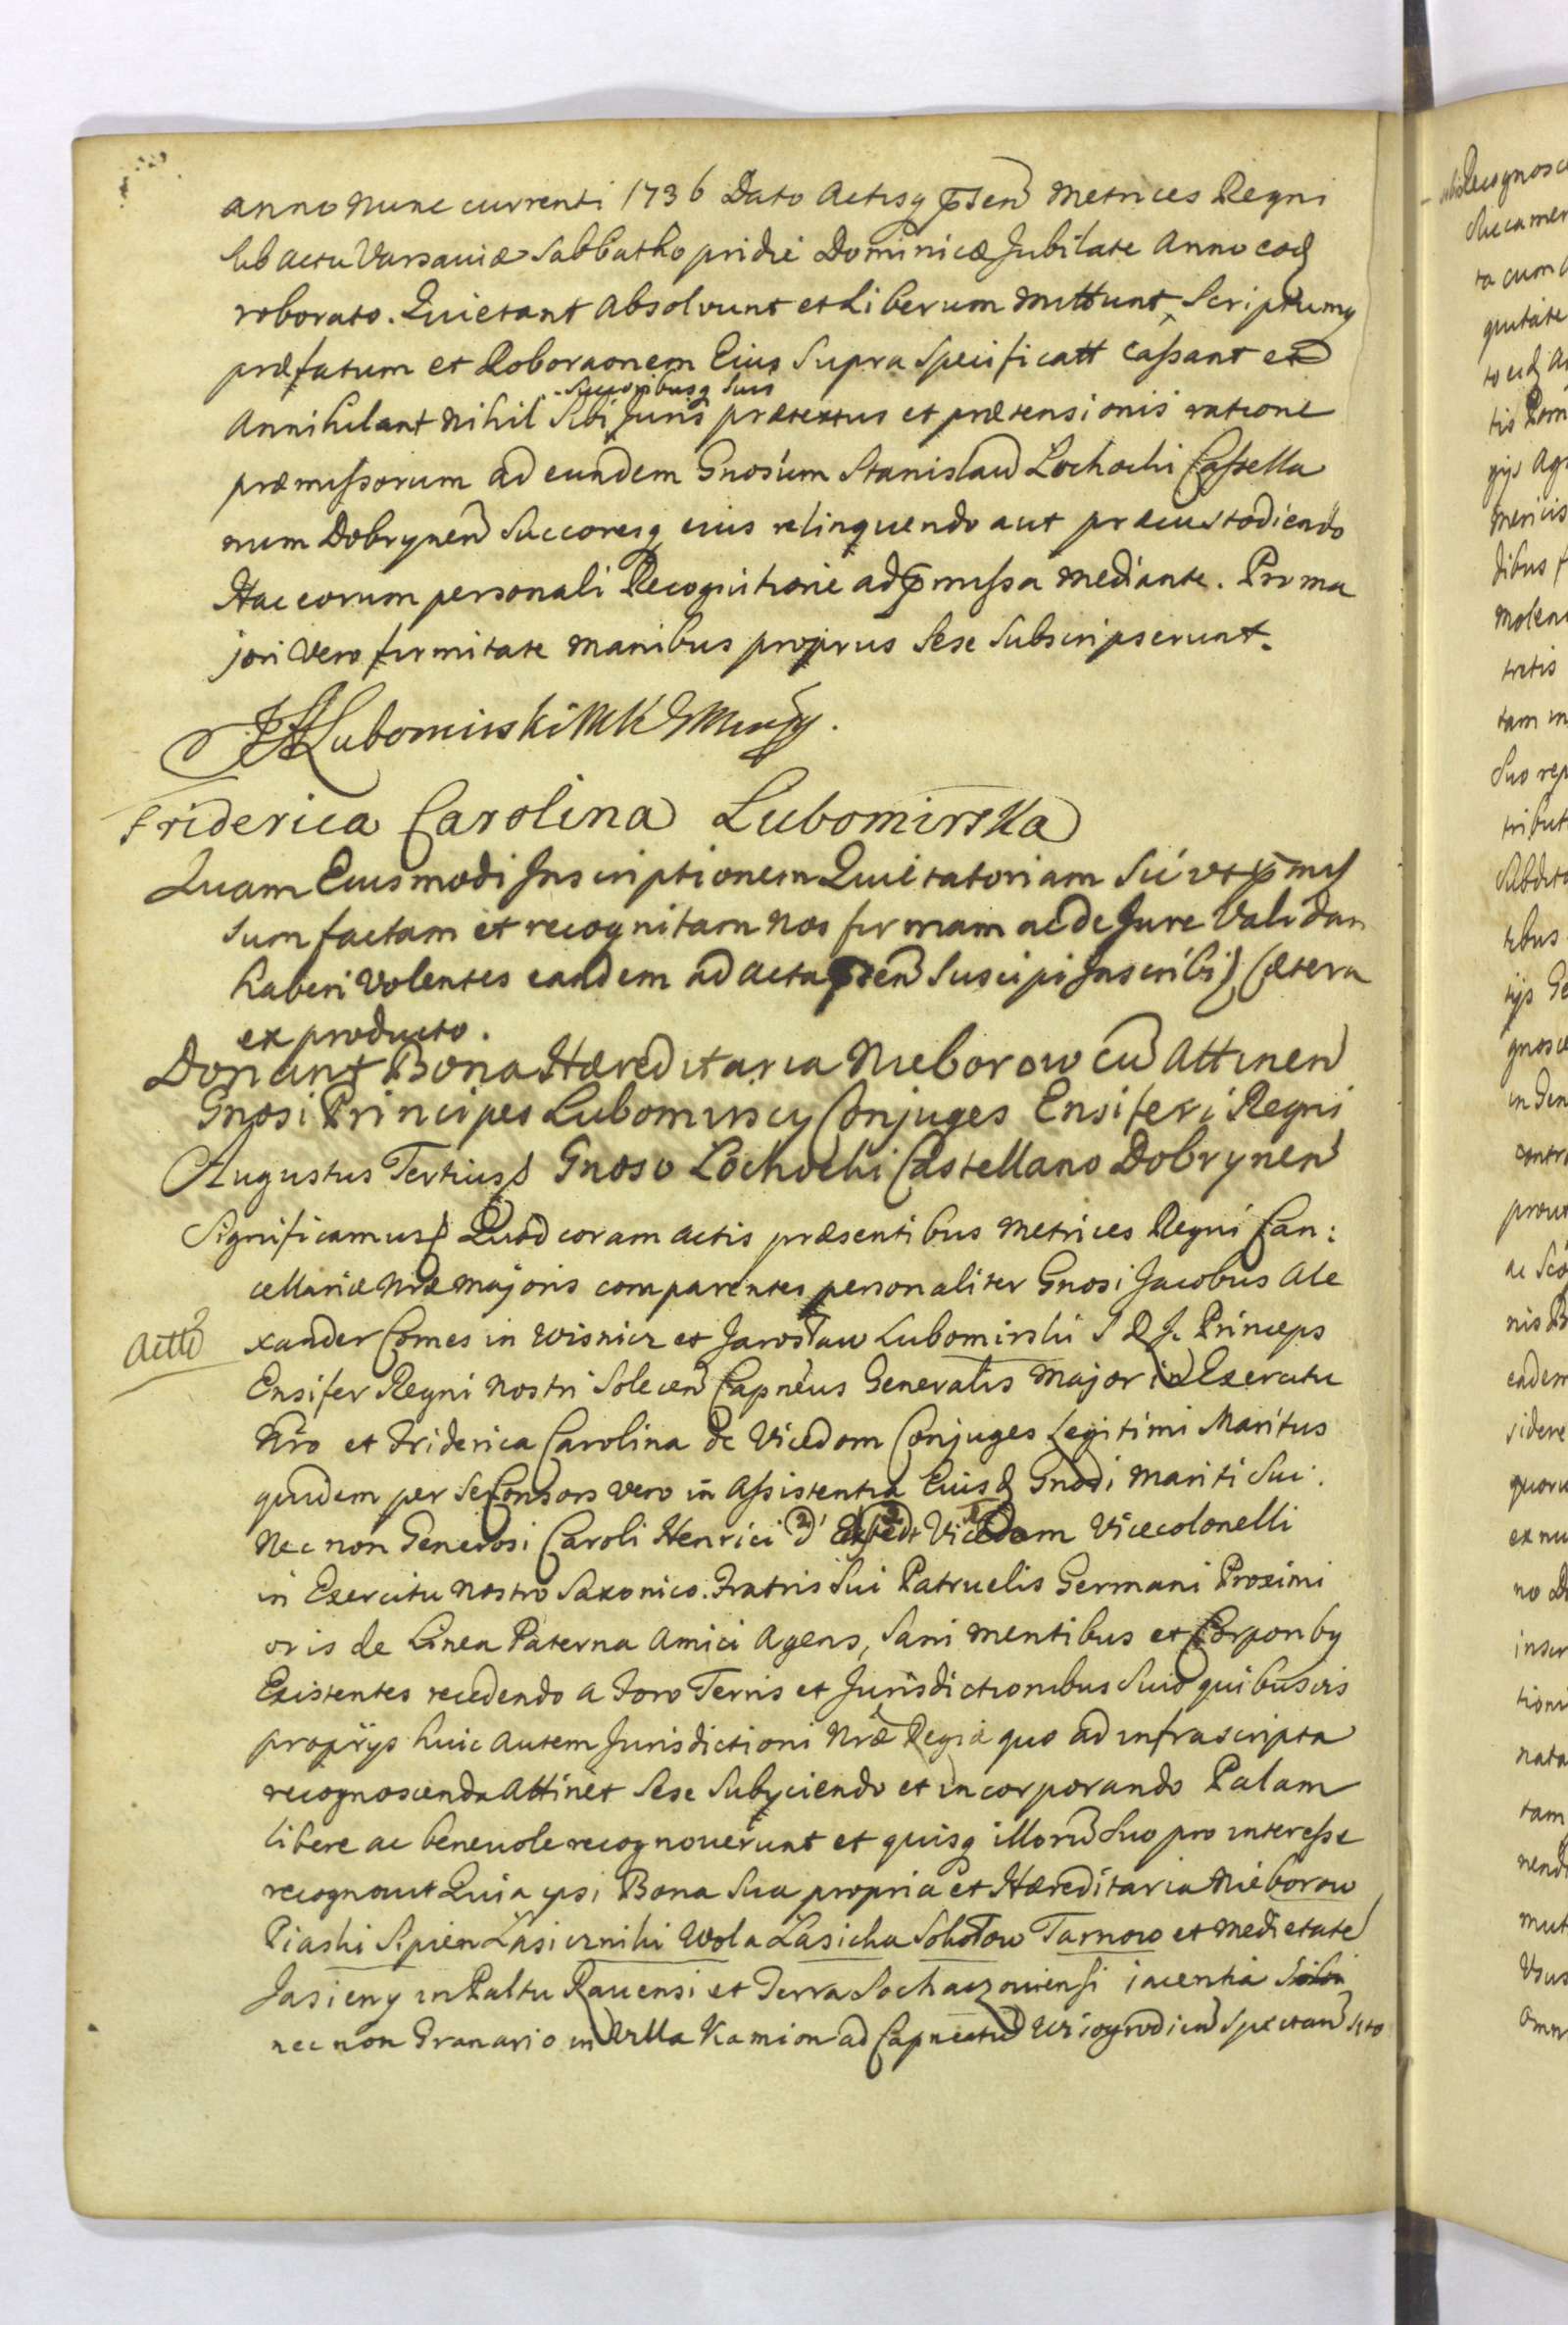 anno nunc currenti 1736 Dato Actisq pnten Metrices Regni
sub actu Varsaviæ Sabbatho pridie Dominicæ Jubilate Anno eod
roborato. Quietant absolvunt et Liberum mittunt Scriptumq
præfatum et Roboraonem Eius Supra Specificatt Cassant et
Succoribusq Suis
Annihilant nihil Sibi Juris prætextus et prætensionis ratione
præmissorum ad eundem Gnosum Stanislaū Lochochi Castella
num Dobrynen Succoresq eius relinquendo aut præcustodiendo
Hac eorum personali Recognitione ad pmissa mediante. Pro ma
jori Vero firmitate manibus proprys Sese Subscripserunt.
Lubomirski
Friderica Carolina Lubomirska
Quam Eiusmodi Inscriptionem Quietatoriam Sic ut pmis
sum factam et recognitam nos firmam ac de Jure Validam
haberi Volentes eandem ad acta pnten Suscipi Inscribi Cætera
ex producto.
Donant Bona Hæreditaria Nieborow cū Attinen
Gnosi Principes Lubomirscy Conjuges Ensiferi Regni
Augustus Tertius Gnoso Lochochi Castellano Dobrynen
Significamus Quod coram actis præsentibus Metrices Regni Can:
cellariæ Nræ Majoris comparentes personaliter Gnosi Jacobus Ale
Actto
xander Comes in Wisnicz et Jarosław Lubomirski S R J. Princeps
Ensifer Regni Nostri Solecen Capneus Generalis Major in Exercitu
Nro et Friderica Carolina de Vicedom Conjuges Legitimi Maritus
quidem per se Consors vero in Assistentia Eiusd Gnosi Mariti Sui.
Nec non Generosi Caroli Henrici d' Vicedom Vicecolonelli
in Exercitu Nostro Saxonico. Fratris Sui Patruelis Germani Proximi
oris de Linea Paterna Amici Agens, Sani mentibus et Corporibq
Existentes recedendo a Foro Terris et Jurisdictionibus Suis quibusvis
proprÿs huic autem Jurisdictioni Nræ Regiæ quo ad infrascripta
recognoscenda Attinet Sese Subyciendo et incorporando Palam
libere ac benevole recognoverunt et quisq illorū Suo pro interesse
recognovit Quia ipsi Bona Sua propria et Hæreditaria Nieborow
Piaski Sipien Lasiczniki Wola Łasicka Sokołow Tarnow et medietate
Jasieny in Paltu Ravensi et Terra Sochaczoviensi iacentia
nec non Granario in Villa Kamion ad Capneatū Wisogrodien Spectan Sito